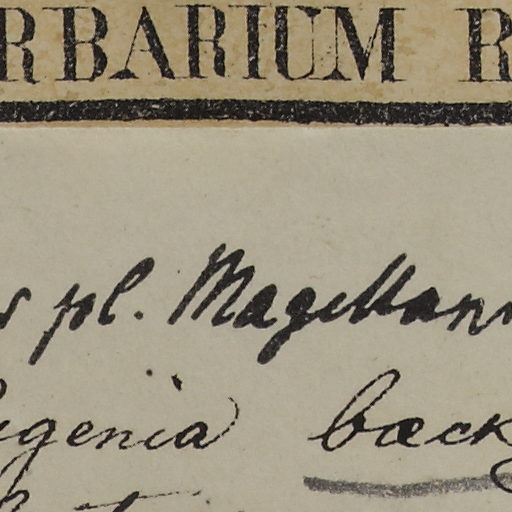 RBARIUM R
pl. Magellann
igenia baeck